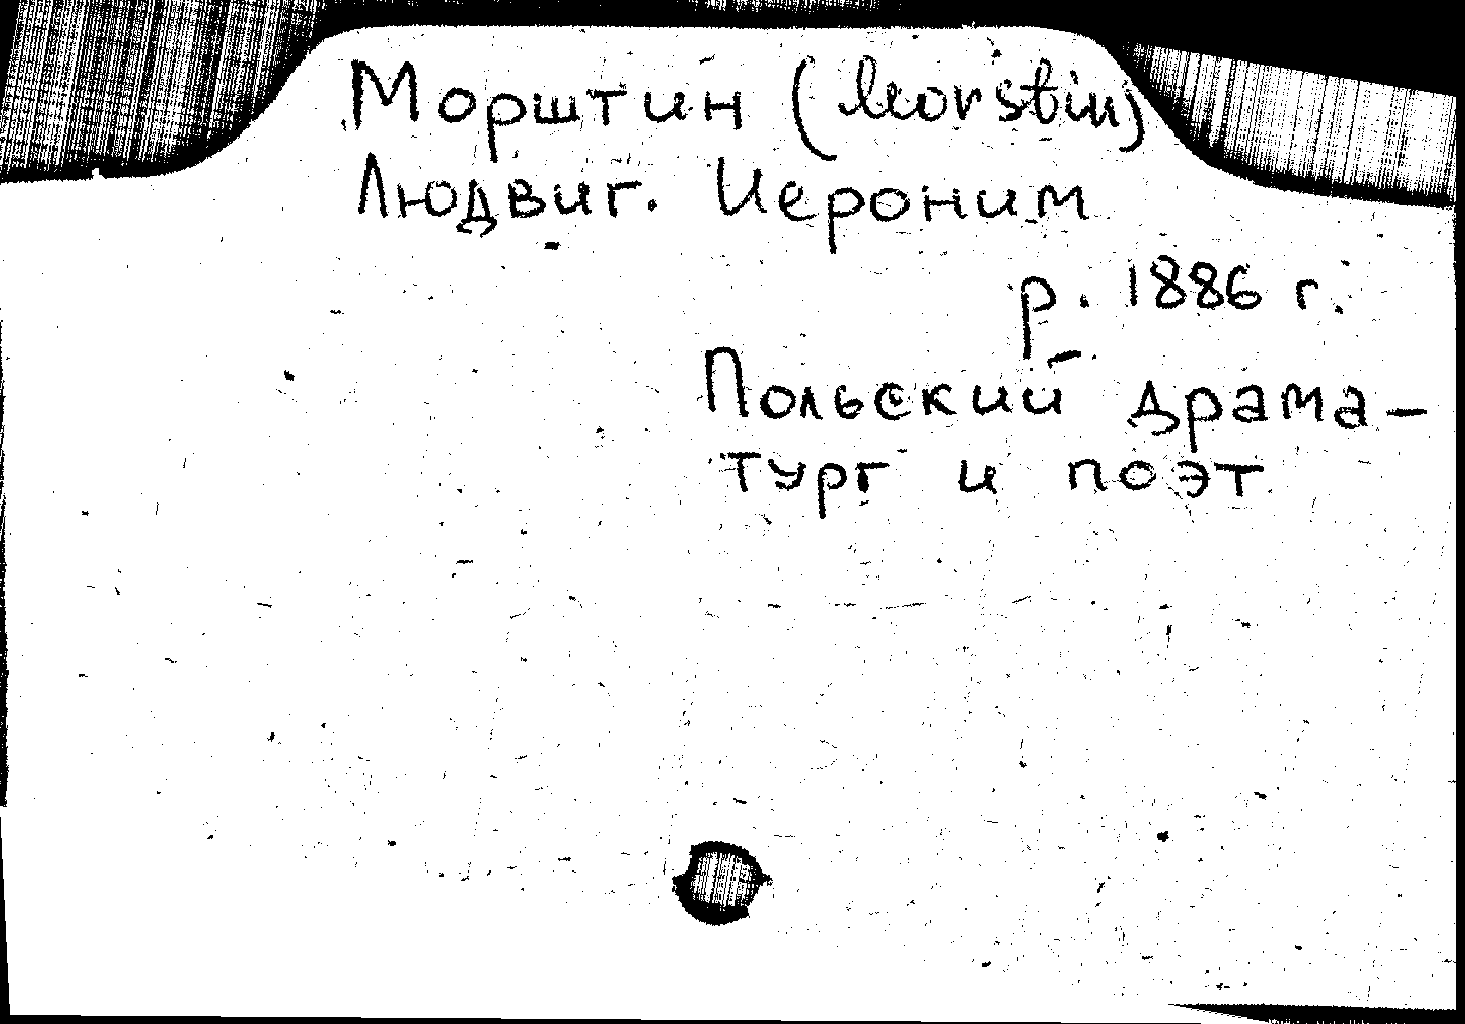 Морштин (Morstin)
Людвиг. Иероним
р. 1886 г.
Польский драма-
тург и поэт